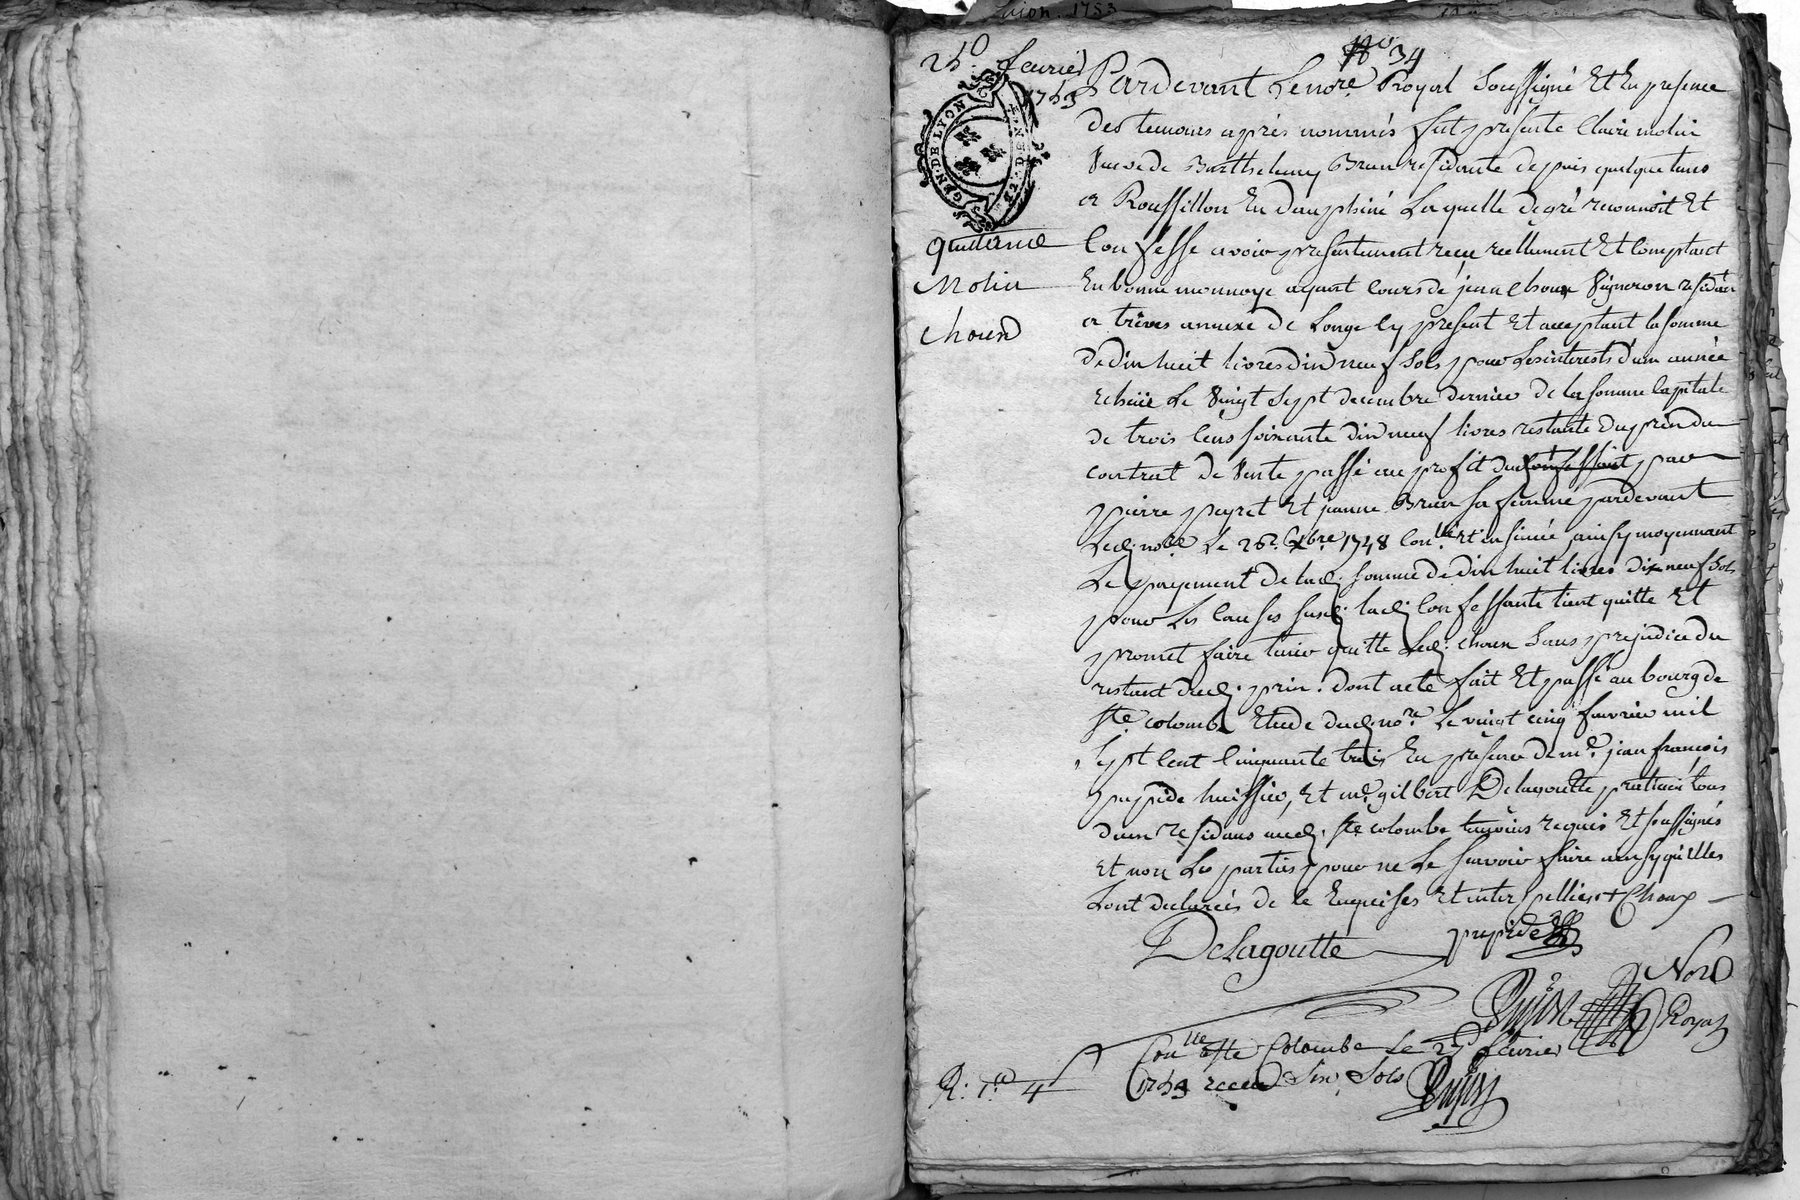 Dujon. 1753
No 34
25e fevrier
1753
GEN. DE LYON
Quittance
Molin
choux
Pardevant Le no.re Royal Soussigné Et En presence
des temoins après nommés fut presente Claire molin
Veuve de Barthelemy Brun residante depuis quelque tems
a Roussillon En dauphiné Laquelle de gré reconnoit Et
Confesse avoir presentement reçu reellement Et Comptant
En bonne monnoye ayant Cours de jean Choux Vigneron residant
a trêves annexe de Longe Cy present Et acceptant la somme
de dix huit livres dix neuf Sols pour Les interests d'une année
echüe Le Vingt Sept decembre dernier de la somme Capitale
de trois Cens soixante dix neuf livres restante du prix du
contrat de Vente passé au profit dud. confessant par
pierre peyret Et jeanne Brun sa femme pardevant
Led. no.re Le 26e Xbre 1748 Con.llé Et insinué, ainsy moyennant
Le payement de lad. somme de dix huit livres dix neuf Sols
pour Les Causes susd. lad. Confessante tient quitte Et
promet faire tenir quitte Led. choux Sans prejudice du
restant dud. prix. dont acte fait Et passé au bourg de
Ste colombe Etude dud. no.re Le vingt cinq fevrier mil
Sept Cent Cinquante trois En presence de m.e jean françois
pupide huissier, Et m.e gilbert Delagoutte praticien tous
deux residans aud. Ste colombe temoins requis Et soussignés
Et non Les parties pour ne Le scavoir faire ainsy qu'Elles
Sont declarées de ce Enquises Et interpellées + Choux
Delagoutte pupide
Dujon No.re
Royal
Con.llé a Ste Colombe Le 27 fevrier
1753 receu Six Sols
Dujon
R: 1.re 4